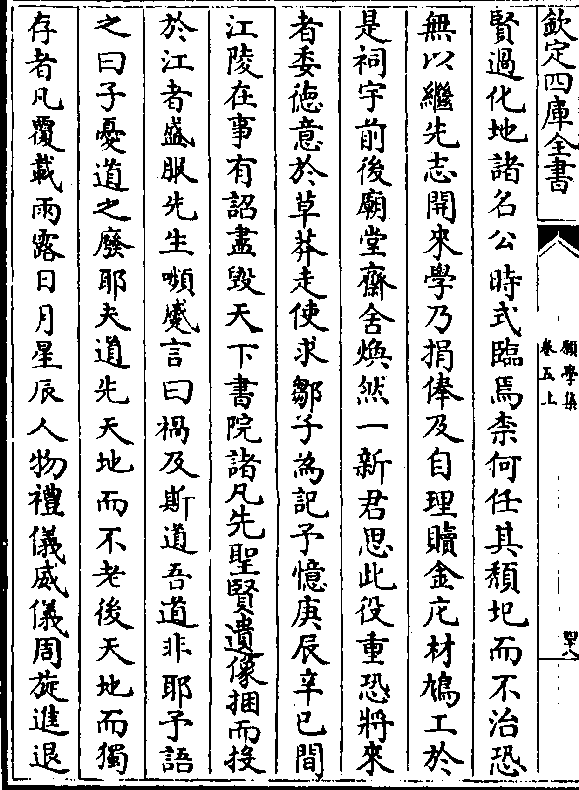 欽定四庫全書
願學集
卷五上
賢過化地諸名公時式臨焉柰何任其頽圮而不治恐
無以繼先志開來學乃捐俸及自理贖金庀材鳩工於
是祠宇前後廟堂齋舍煥然一新君思此役重恐將來
者委徳意於草莽走使求鄒子為記予憶庚辰辛巳間
江陵在事有詔盡毁天下書院諸凡先聖賢遺像捆而投
於江者盛服先生嚬蹙言曰禍及斯道吾道非耶予語
之曰子憂道之廢耶夫道先天地而不老後天地而獨
存者凡覆載雨露日月星辰人物禮儀威儀周旋進退